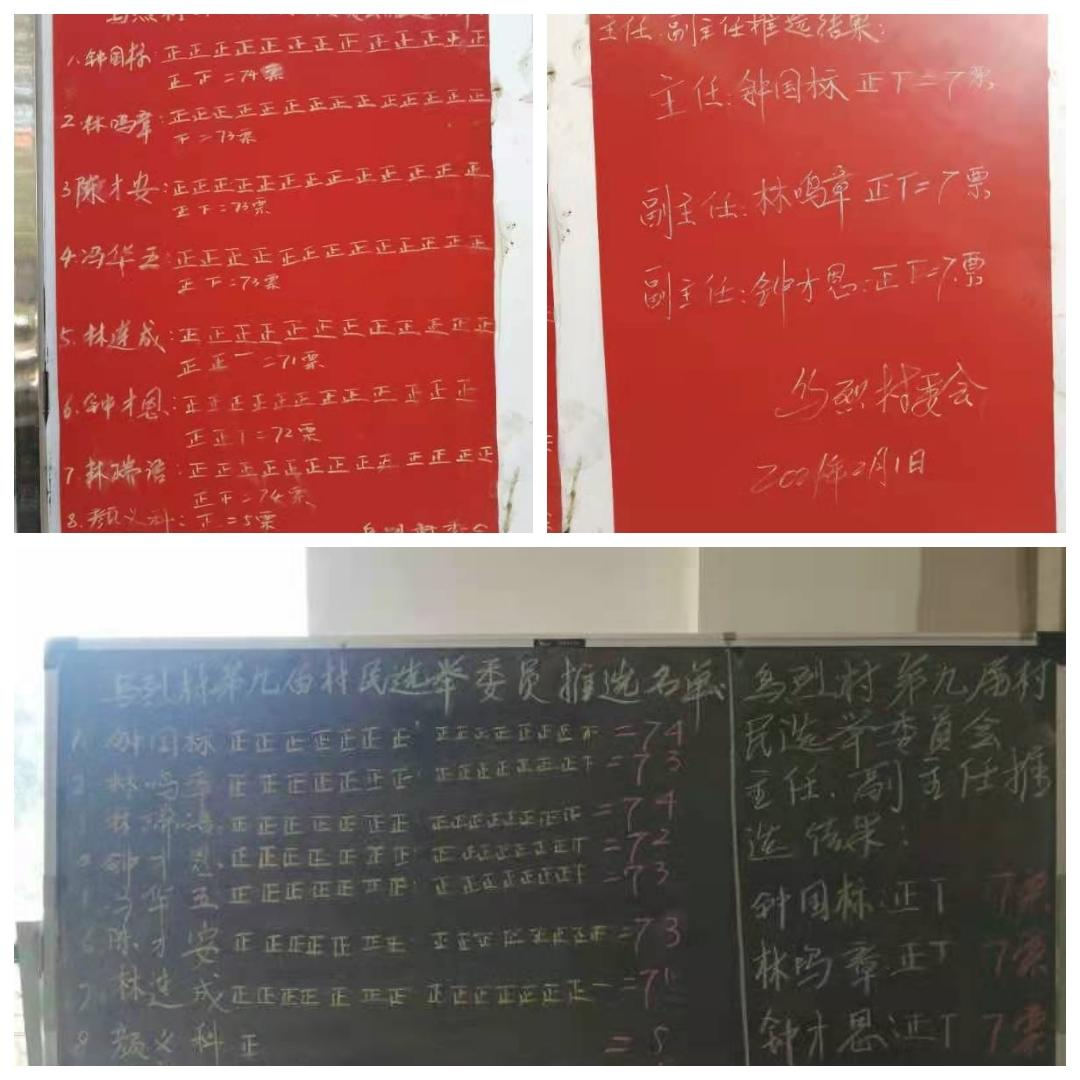 1.钟国标:正正正正正正正正正正正正正
正正=74票
2.林鸣章:正正正正正正正正正正正正正
下=73票
3陈才安:正正正正正正正正正正正正
正正下=73票
4.冯华五:正正正正正正正正正正正正
正下=73票
5.林莲成:正正正正正正正正正正正正
正正一=71票
6.钟才恩:正正正正正正正正正正正正
正正丅=72票
7.林瑞浯:正正正正正正正正正正正正
正正=74票
8.颜义科:正=5票
主任.副主任推选结果:
主任:钟国标正丅=7票
副主任:林鸣章正丅=7票
副主任:钟才恩:正丅=7票
乌烈村委会
2021年2月1日
乌烈村第九届村民选举委员推选名单
1.钟国标正正正正正正正 正正正正正正正正=74
2林鸣章正正正正正正正 正正正正正正正下=73
林瑞浯正正正正正正正 正正正正正正正正=74
钟才恩正正正正正正正 正正正正正正正丅=72
冯华五正正正正正正正 正正正正正正正下=73
6陈才安正正正正正正正 正正正正正正正下=73
7林连成正正正正正正正 正正正正正正正一=71
8颜义科正 =5
乌烈村第九届村
民选举委员会
主任.副主任推
选结果:
钟国标:正丅 7票
林鸣章:正丅 7票
钟才恩:正丅 7票